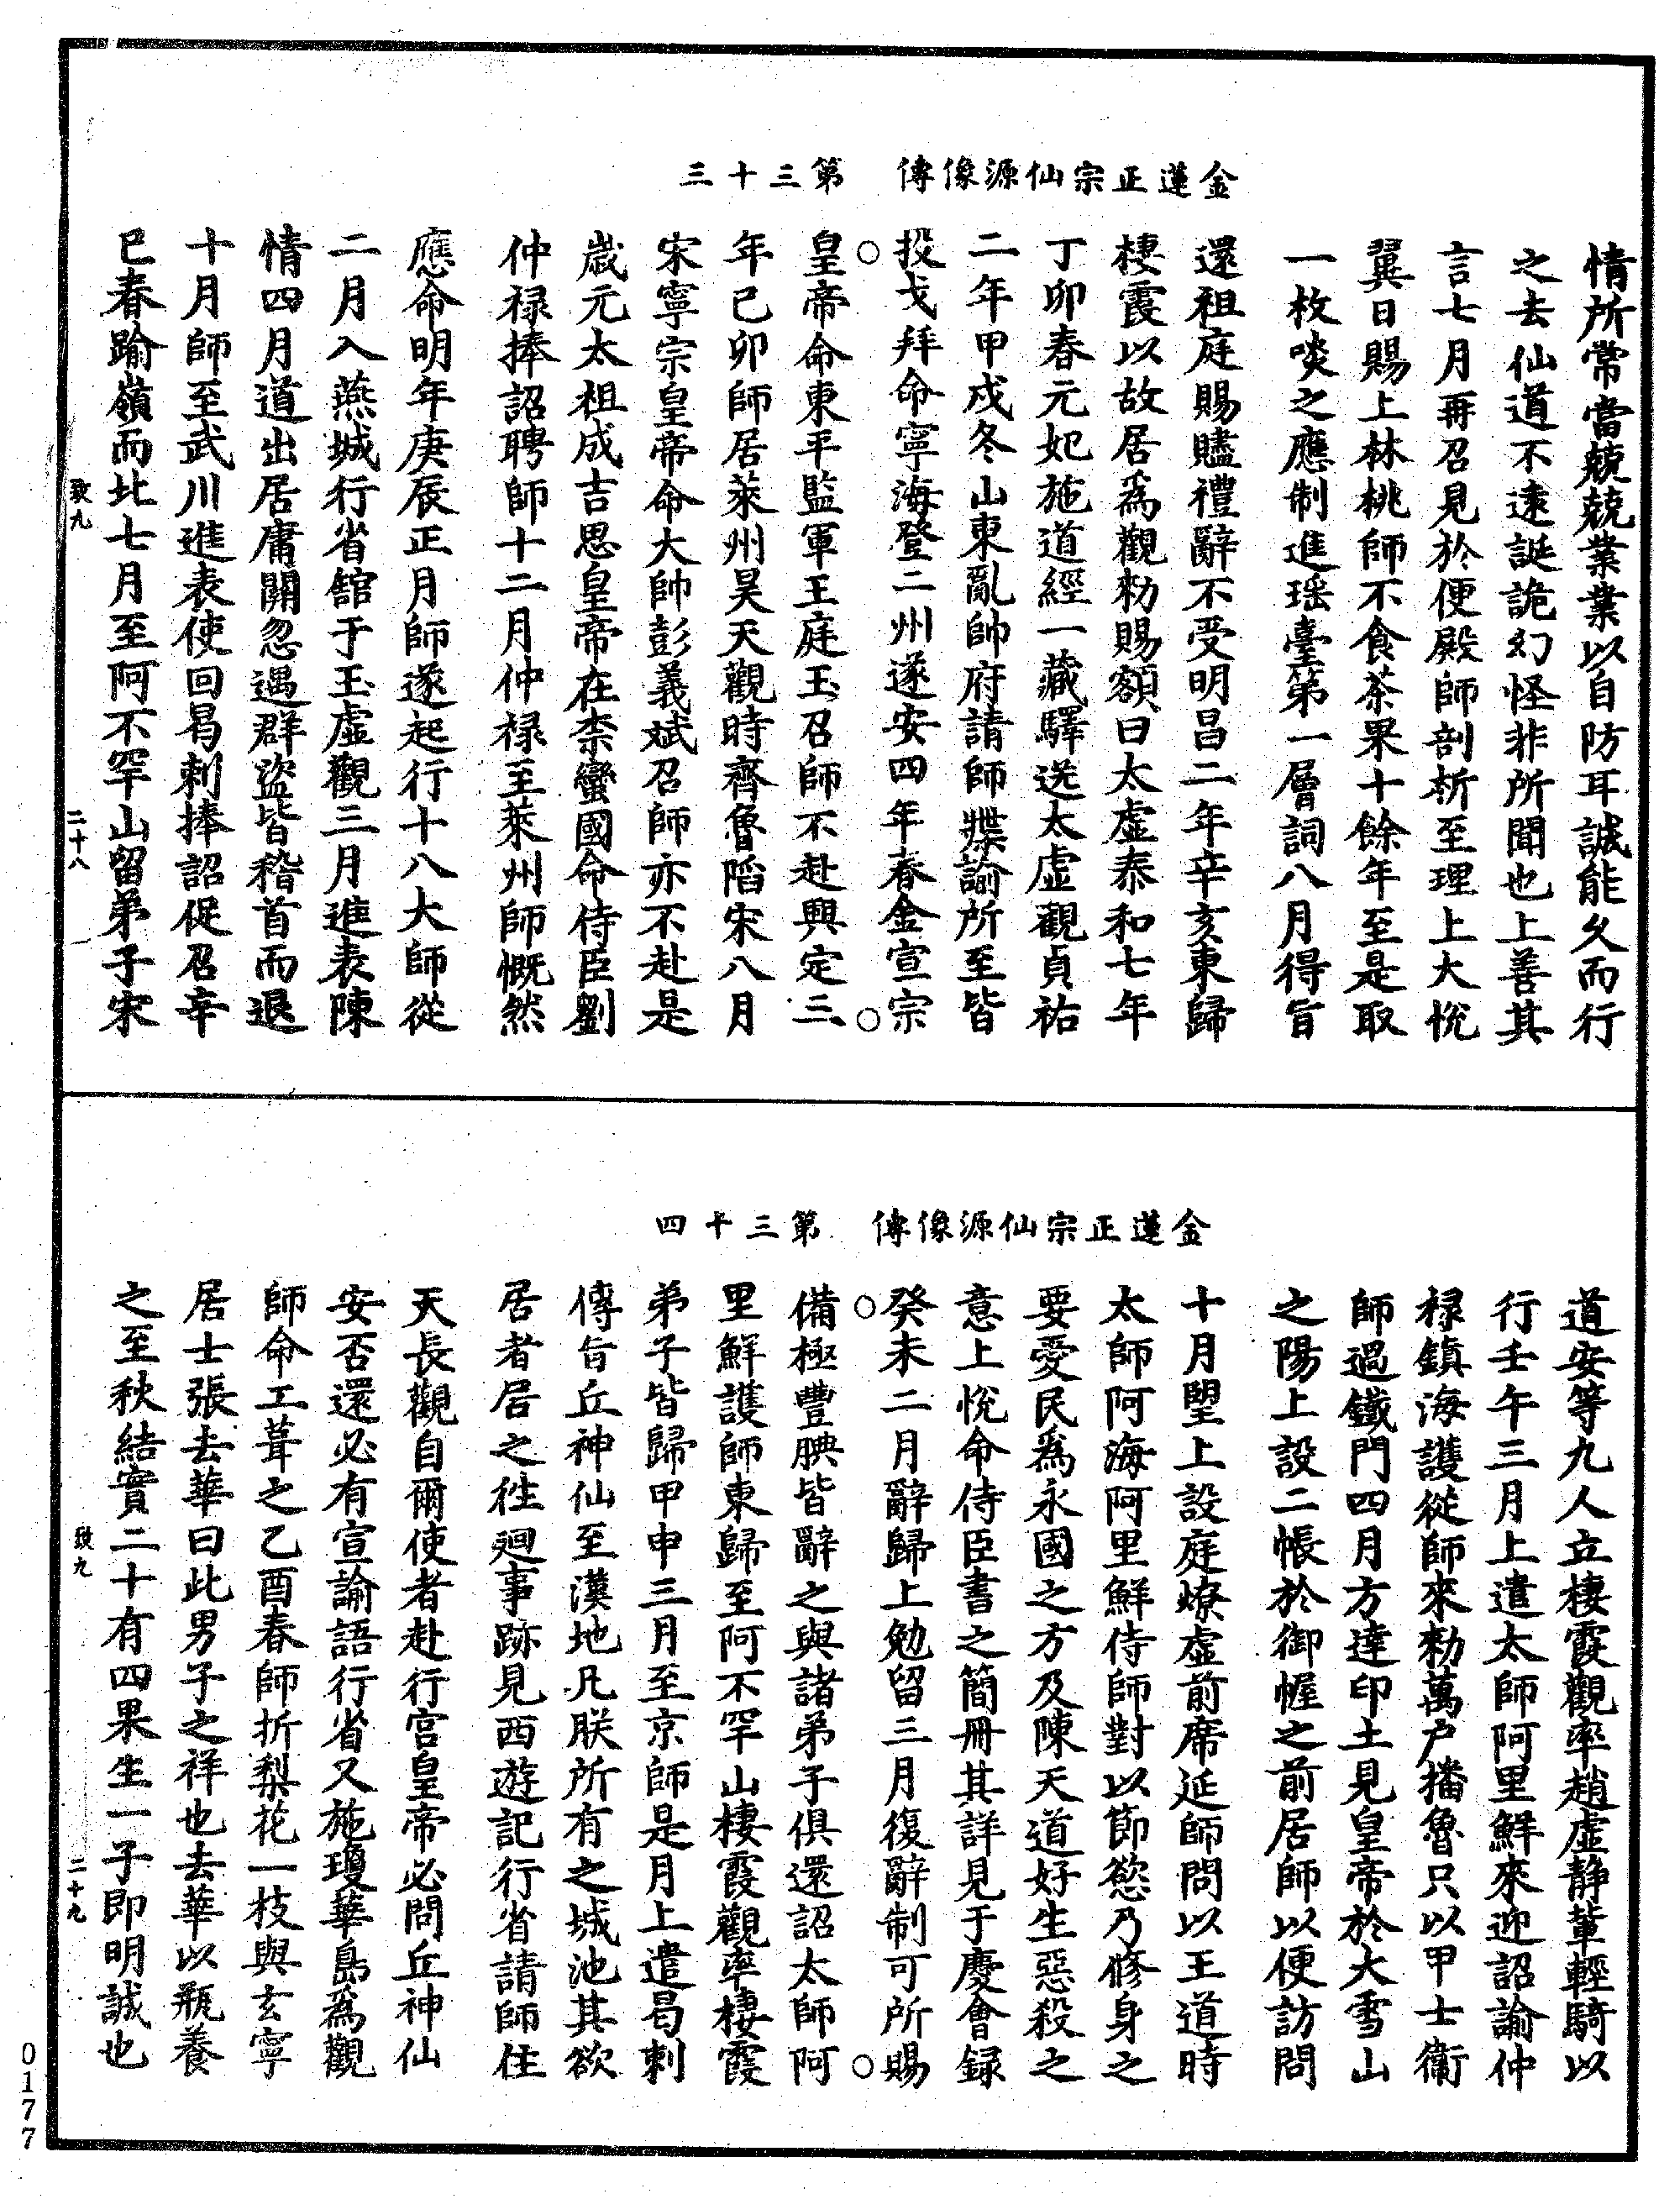 金蓮正宗仙源像傳　第三十三
情所常當兢兢業業以自防耳誠能久而行
之去仙道不遠誕詭幻怪非所聞也上善其
言七月再召見於便殿師剖析至理上大悅
翼日賜上林桃師不食茶果十餘年至是取
一枚啖之應制進瑶臺第一層詞八月得旨
還祖庭賜贐禮辭不受明昌二年辛亥東歸
棲霞以故居爲觀勑賜額曰太虛泰和七年
丁卯春元妃施道經一藏驛送太虛觀貞祐
二年甲戌冬山東亂帥府請師牒諭所至皆
投戈拜命寧海登二州遂安四年春金宣宗
皇帝命東平監軍王庭玉召師不赴興定三
年己卯師居萊州昊天觀時齊魯陷宋八月
宋寧宗皇帝命大帥彭義斌召師亦不赴是
歲元太祖成吉思皇帝在柰蠻國命侍臣劉
仲禄捧詔聘師十二月仲禄至萊州師慨然
應命明年庚辰正月師遂起行十八大師從
二月入燕城行省舘于玉虛觀三月進表陳
情四月道出居庸關忽遇群盜皆稽首而退
十月師至武川進表使回曷剌捧詔促召辛
巳春踰嶺而北七月至阿不罕山留弟子宋
致九
二十八
金蓮正宗仙源像傳　第三十四
道安等九人立棲霞觀率趙虛靜輩輕騎以
行壬午三月上遣太師阿里鮮來迎詔諭仲
禄鎮海護從師來勑萬户播魯只以甲士衛
師過鐵門四月方達印土見皇帝於大雪山
之陽上設二帳於御幄之前居師以便訪問
十月望上設庭燎虛前席延師問以王道時
太師阿海阿里鮮侍師對以節慾乃脩身之
要愛民爲永國之方及陳天道好生惡殺之
意上悅命侍臣書之簡冊其詳見于慶會録
癸未二月辭歸上勉留三月復辭制可所賜
備極豐腆皆辭之與諸弟子俱還詔太師阿
里鮮護師東歸至阿不罕山棲霞觀率棲霞
弟子皆歸甲申三月至京師是月上遣曷剌
傳旨丘神仙至漢地凡朕所有之城池其欲
居者居之徃廻事跡見西遊記行省請師住
天長觀自爾使者赴行宫皇帝必問丘神仙
安否還必有宣諭語行省又施瓊華島爲觀
師命工葺之乙酉春師折梨花一枝與玄寧
居士張去華曰此男子之祥也去華以瓶養
之至秋結實二十有四果生一子即明誠也
致九
二十九
0177